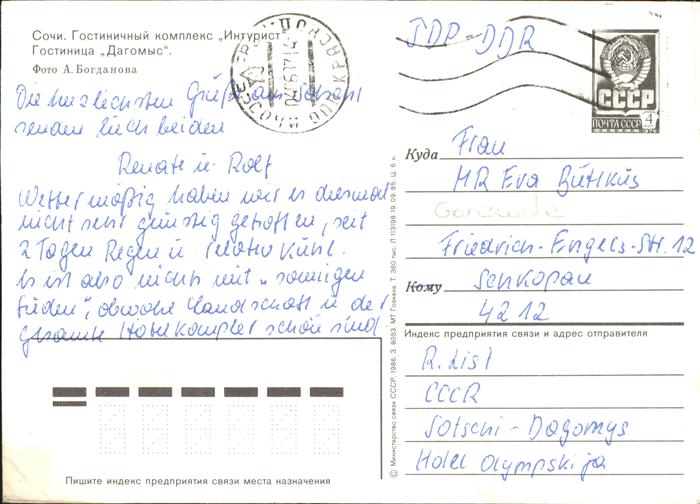 Сочи. Гостиничный комплекс „Интурист“
Гостиница „Дагомыс“.
Фото А. Богданова
Die herzlichsten Grüße aus Sotschi
senden Euch beiden
Renate u. Rolf
Wettermäßig haben wir es diesmal
nicht sehr günstig getroffen, seit
2 Tagen Regen u. relativ kühl.
Es ist also nichts mit „sonnigen
Süden“, obwohl Landschaft u. der
gesamte Hotelkomplex schön sind
ГДР-DDR
СССР
ПОЧТА СССР
4
1976
Куда
Frau
MR Eva Büttkus
Friedrich-Engels-Str. 12
Кому
Schkopau
4212
Индекс предприятия связи и адрес отправителя
R. List
CCCR
Sotschi-Dagomys
Hotel Olympskija
Пишите индекс предприятия связи места назначения
© Министерство связи СССР, 1986. З. 8053. МТ Гознака. Т. 360 тыс. Л 113198 19.09.85. Ц. 6 к.